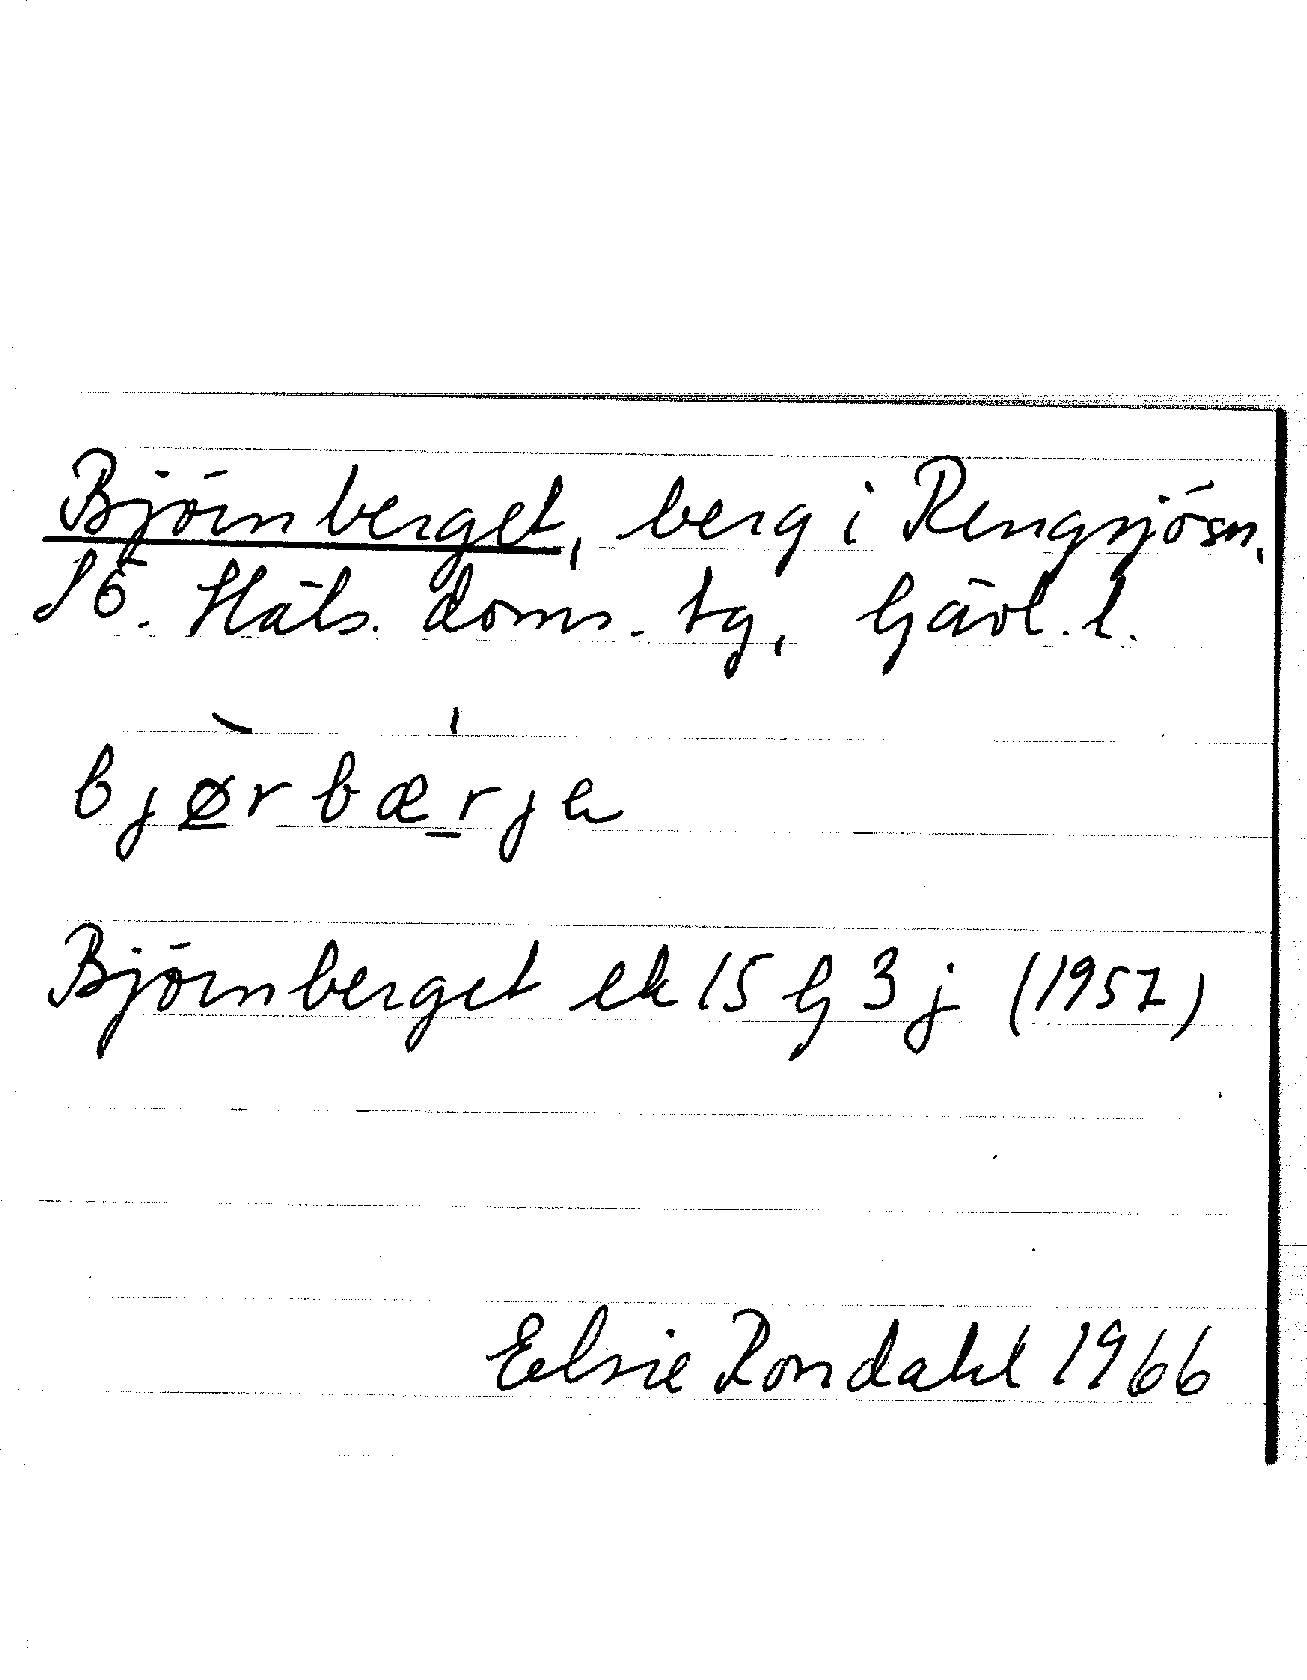 Björnberget, berg i Rengsjösn.
Sö. Häls. doms. tg, Gävl. l.
bjø̀rbæ̍rje
Björnberget ek 15 G 3 j (1957)
Elsie Rondahl 1966